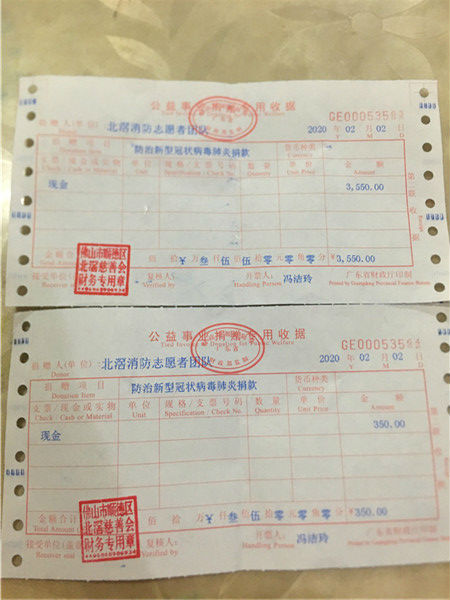 公益事业捐赠专用收据
GE0005358
捐赠人(单位): 北滘消防志愿者团队
2020 年 02 月 02 日
Y M D
捐赠项目 防治新型冠状病毒肺炎捐款 货币种类
Donation Item Currency
支票/现金或实物 单位 规格/支票号码 数量 单价 金额
Check / Cash or Material Unit Specification / Check No. Quantity Unit Price Amount
现金 3,550.00
金额合计 佰 拾 万 ¥ 叁 仟 伍 佰 伍 拾 零 元 零 角 零 分 ¥3,550.00
佛山市顺德区
北滘慈善会
财务专用章
接受单位 复核人: 开票人: 冯洁玲 广东省财政厅印制
Verified by Handling Person
第二联 收据
公益事业捐赠专用收据
Donation for Public Welfare
GE0005358
捐赠人(单位): 北滘消防志愿者团队
2020 年 02 月 02 日
Y M D
捐赠项目 防治新型冠状病毒肺炎捐款 货币种类
Donation Item Currency
支票/现金或实物 单位 规格/支票号码 数量 单价 金额
Check / Cash or Material Unit Specification / Check No. Quantity Unit Price Amount
现金 350.00
金额合计 佰 拾 万 ¥ 仟 叁 佰 伍 拾 零 元 零 角 零 分 ¥350.00
Total Amount
佛山市顺德区
北滘慈善会
财务专用章
接受单位(盖章) 复核人: 开票人: 冯洁玲 广东省财政厅印制
Receiver seal Verified by Handling Person